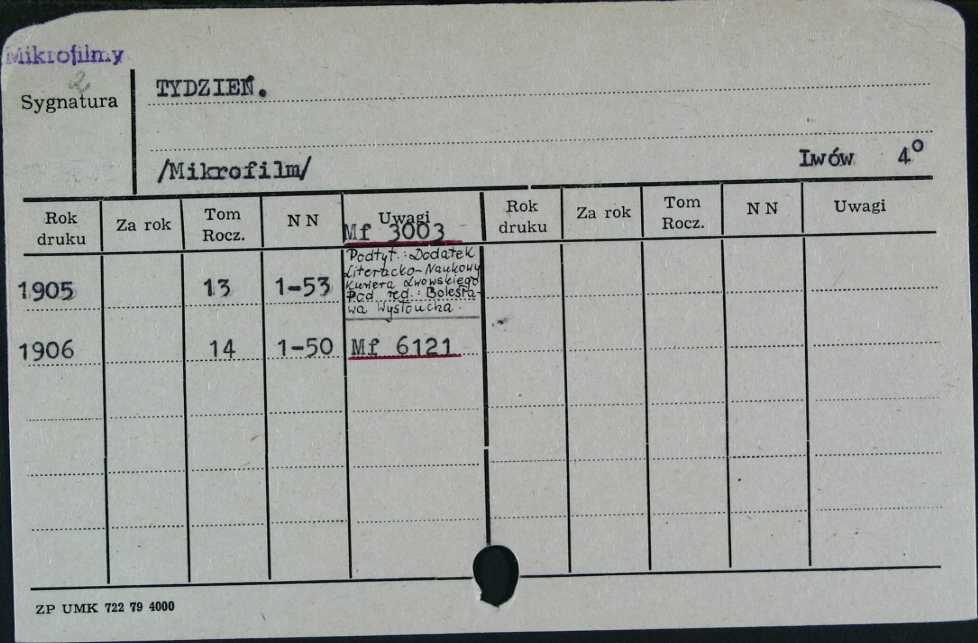 Mikrofilmy
2
Sygnatura
TYDZIEŃ.
/Mikrofilm/ Lwów 4°
Rok druku Za rok Tom Rocz. N N Uwagi Rok druku Za rok Tom Rocz. N N Uwagi
Mf 3003
1905 13 1-53
Podtyt.: Dodatek
Literacko-Naukowy
Kuriera Lwowskiego
Pod red.: Bolesła-
wa Wysłoucha.
1906 14 1-50 Mf 6121
ZP UMK 722 79 4000